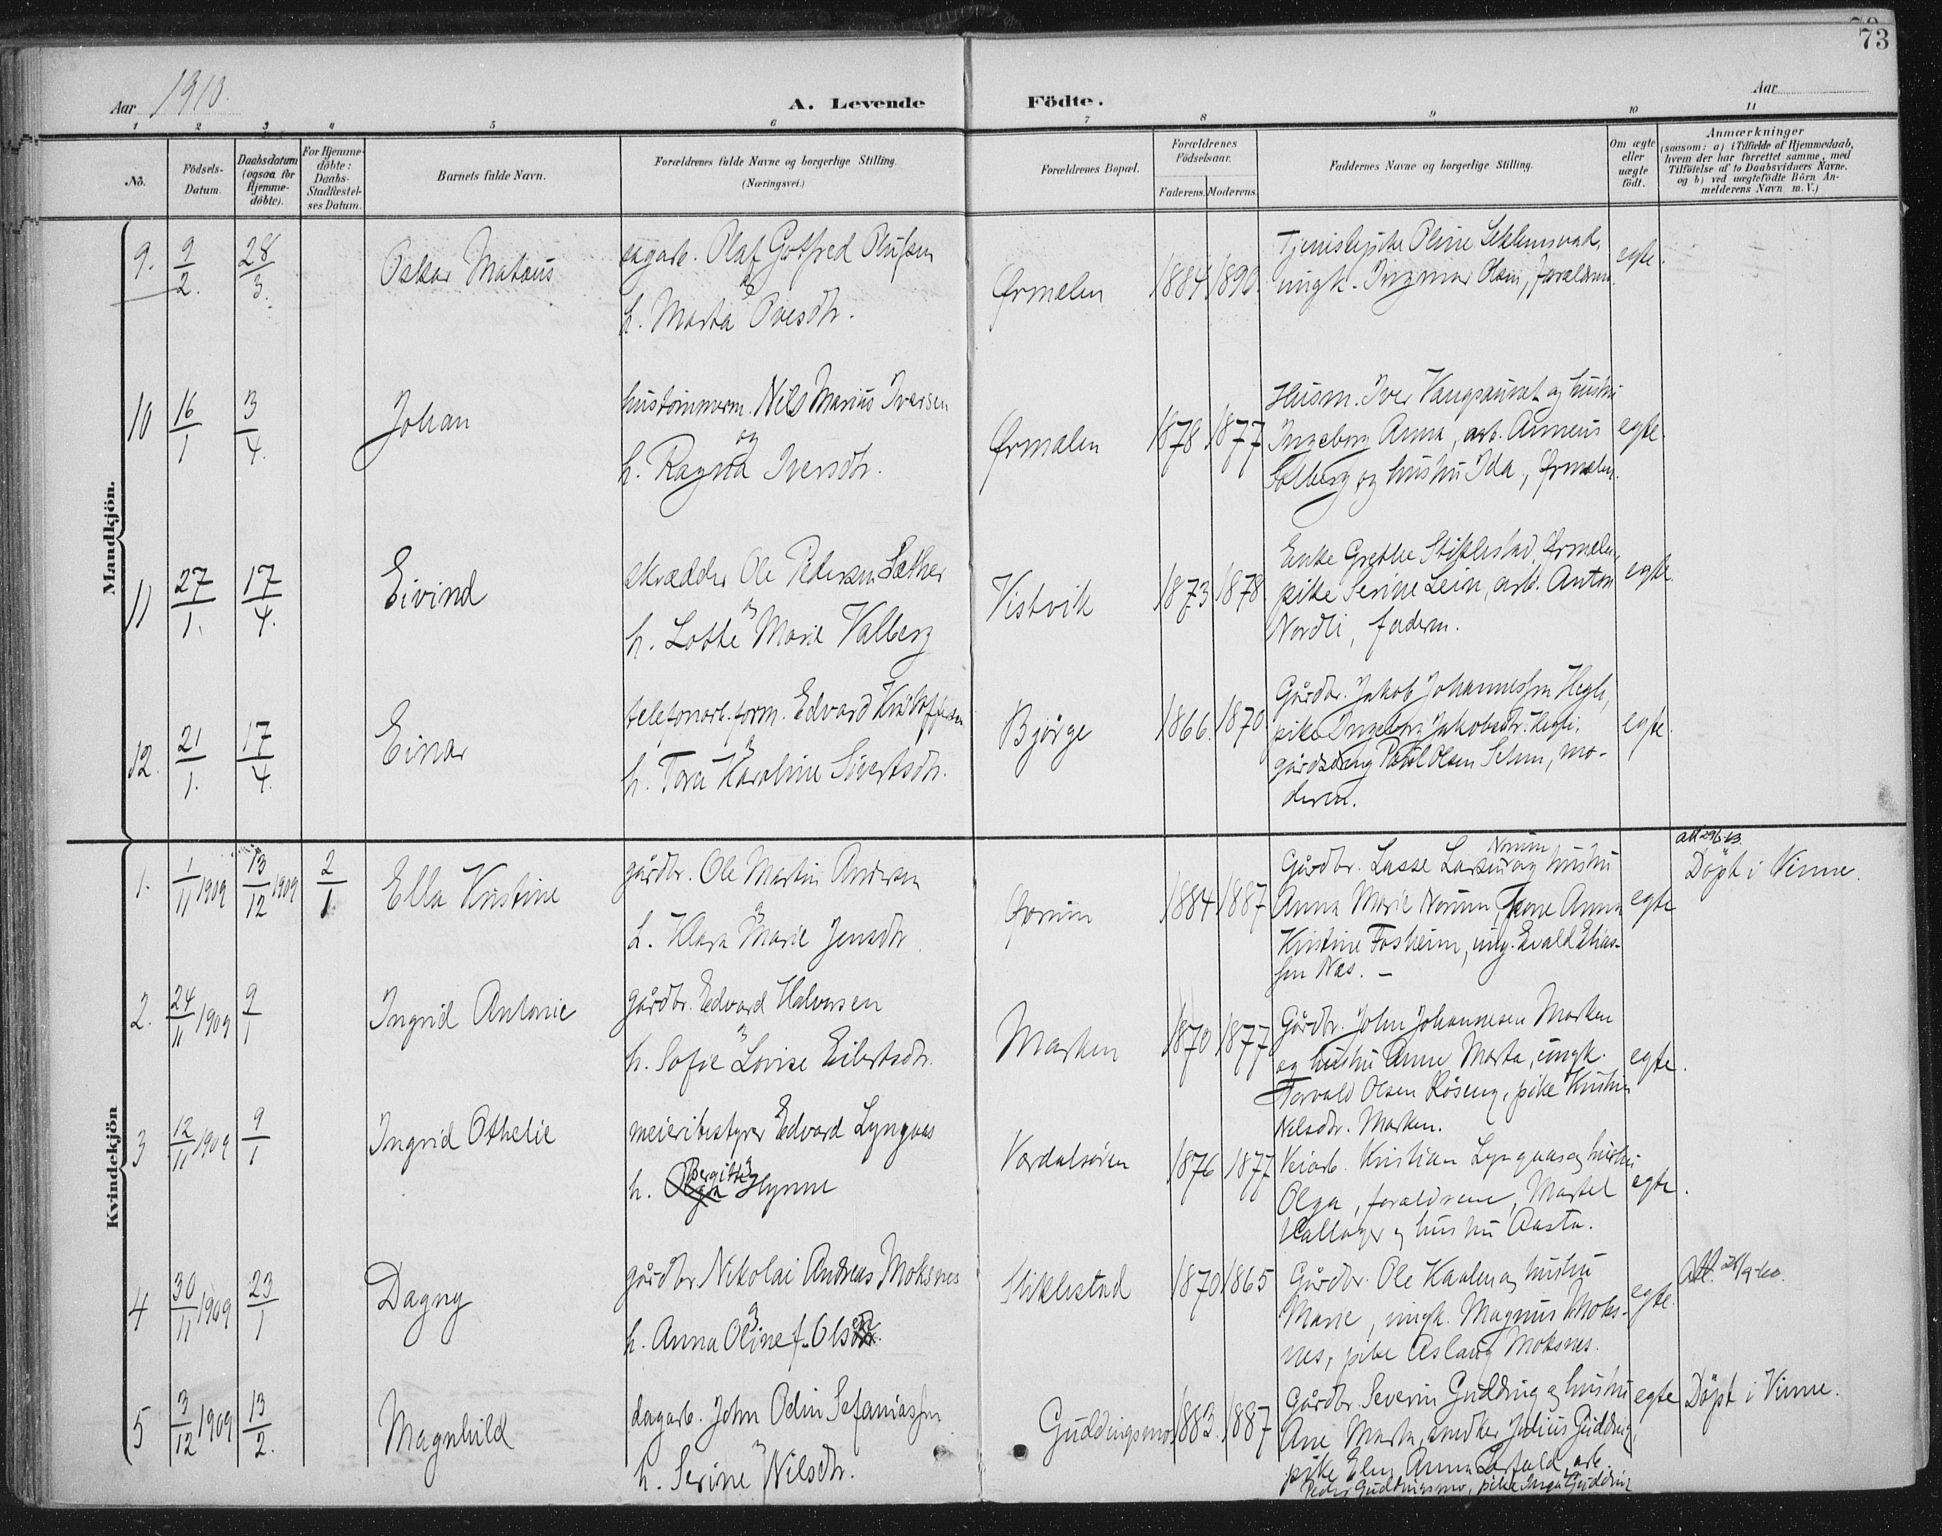 73
Aar 1910.
A. Levende Födte.
Aar
1 2 3 4 5 6 7 8 9 10 11
No.
Födsels-Datum.
Daabsdatum (ogsaa for Hjemme-döbte).
For Hjemme-döbte: Daabs-Stadfæstel-ses Datum.
Barnets fulde Navn.
Forældrenes fulde Navne og borgerlige Stilling.
(Næringsvei.)
Forældrenes Bopæl.
Forældrenes Födselsaar.
Faderens. Moderens.
Faddernes Navne og borgerlige Stilling.
Om ægte eller uægte födt.
Anmærkninger
(saasom: a) i Tilfælde af Hjemmedaab,
hvem der har forrettet samme, med
Tilföielse af to Daabsvidners Navne,
og b) ved uægtefödte Börn An-
melderens Navn m. V.)
Mandkjön.
9. 9/2. 28/3. Oskar Mataus
sagarb. Olaf Gotfred Olufsen
og
h. Marta Ovesdtr.
Ørmelen 1884 1890.
Tjenestepike Oline
ungk. Ingmar Olsen, forældrene.
egte.
10 16/1 3/4. Johan
Nils Marius Iversen
og
h. Ragna Iversdtr.
Ørmelen 1878 1877
Husm. Iver og hustru
Ingeborg Anna, arb. Anneus
Solberg og hustru Ida, Ørmelen.
egte.
11 27/1. 17/4. Eivind
skrædder Ole Pedersen Sæther
og
h. Lotte Marie Valberg
Vistvik 1873 1878
Enke Grethe Stiklestad, Ørmelen,
pike Serine Lein, arb. Anton
Nordli, faderen.
egte.
12. 21/1. 17/4. Einar
telefonarb.form. Edvard Kristoffersen
og
h. Tora Karoline Sivertsdtr.
Bjørge 1866. 1870
Gårdbr. Jakob Johannessen Hegle,
pike Ingeborg Jakobsdtr.
gårdsdreng Paul Olsen mo-
deren.
egte.
Kvindekjön
1. 1/11 1909 13/12 1909 2/1. Ella Kristine
gårdbr. Ole Martin Andersen
og
h. Klara Marie Jensdtr.
1884 1887
Norum
Gårdbr. Lasse Larsen og hustru
Anna Marie Norum, Anna
Kristine Fosheim, ung. Evald Elias-
sen Næs. –
egte
Döpt i Vinne.
2. 24/11 1909 9/1 Ingrid Antonie
gårdbr. Edvard Halvorsen
og
h. Sofie Lovise Eilertsdtr.
Marken 1870 1877
Gårdbr. John Johannesen Marken
og hustru Anne Marta, ungk.
Torvald Olsen Röseng, pike
Nilsdtr. Marken.
egte.
3 12/11 1909 9/1 Ingrid Othelie
meieribestyrer Edvard Lyngaas
og
Bergitte
h. Olga Hynne
Værdalsøren 1876 1877
Veiarb. Kristian Lyngaas og hustru
Olga, forældrene, Martel
og hustru Aasta.
egte.
4 30/11 1909 23/1 Dagny
gårdbr. Nikolai Andreas Moksnes
og
h. Anna Oline f. Olsen
Stiklestad 1870 1865
Gårdbr. Ole Kaalen og hustru
Marie, ungk. Magnus Moks-
nes, pike Aslaug Moksnes.
egte.
Att. 21/9-60.
5 3/12 1909 13/2. Magnhild
dagarb. John Odin Sefaniassen
og
h. Serine Nilsdtr.
Guddingsmo 1883. 1887
Gårdbr. Severin Gudding og hustru
Ane Marta, snedker Julius Gudding,
pike Elen Anna arb.
Peder Guddingsmo, pike Inga Gudding
egte
Döpt i Vinne.